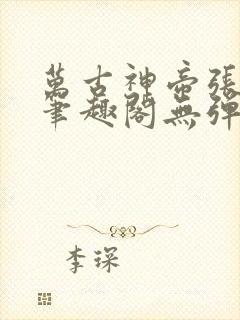 萬古神帝張
筆趣閣無彈
李琛